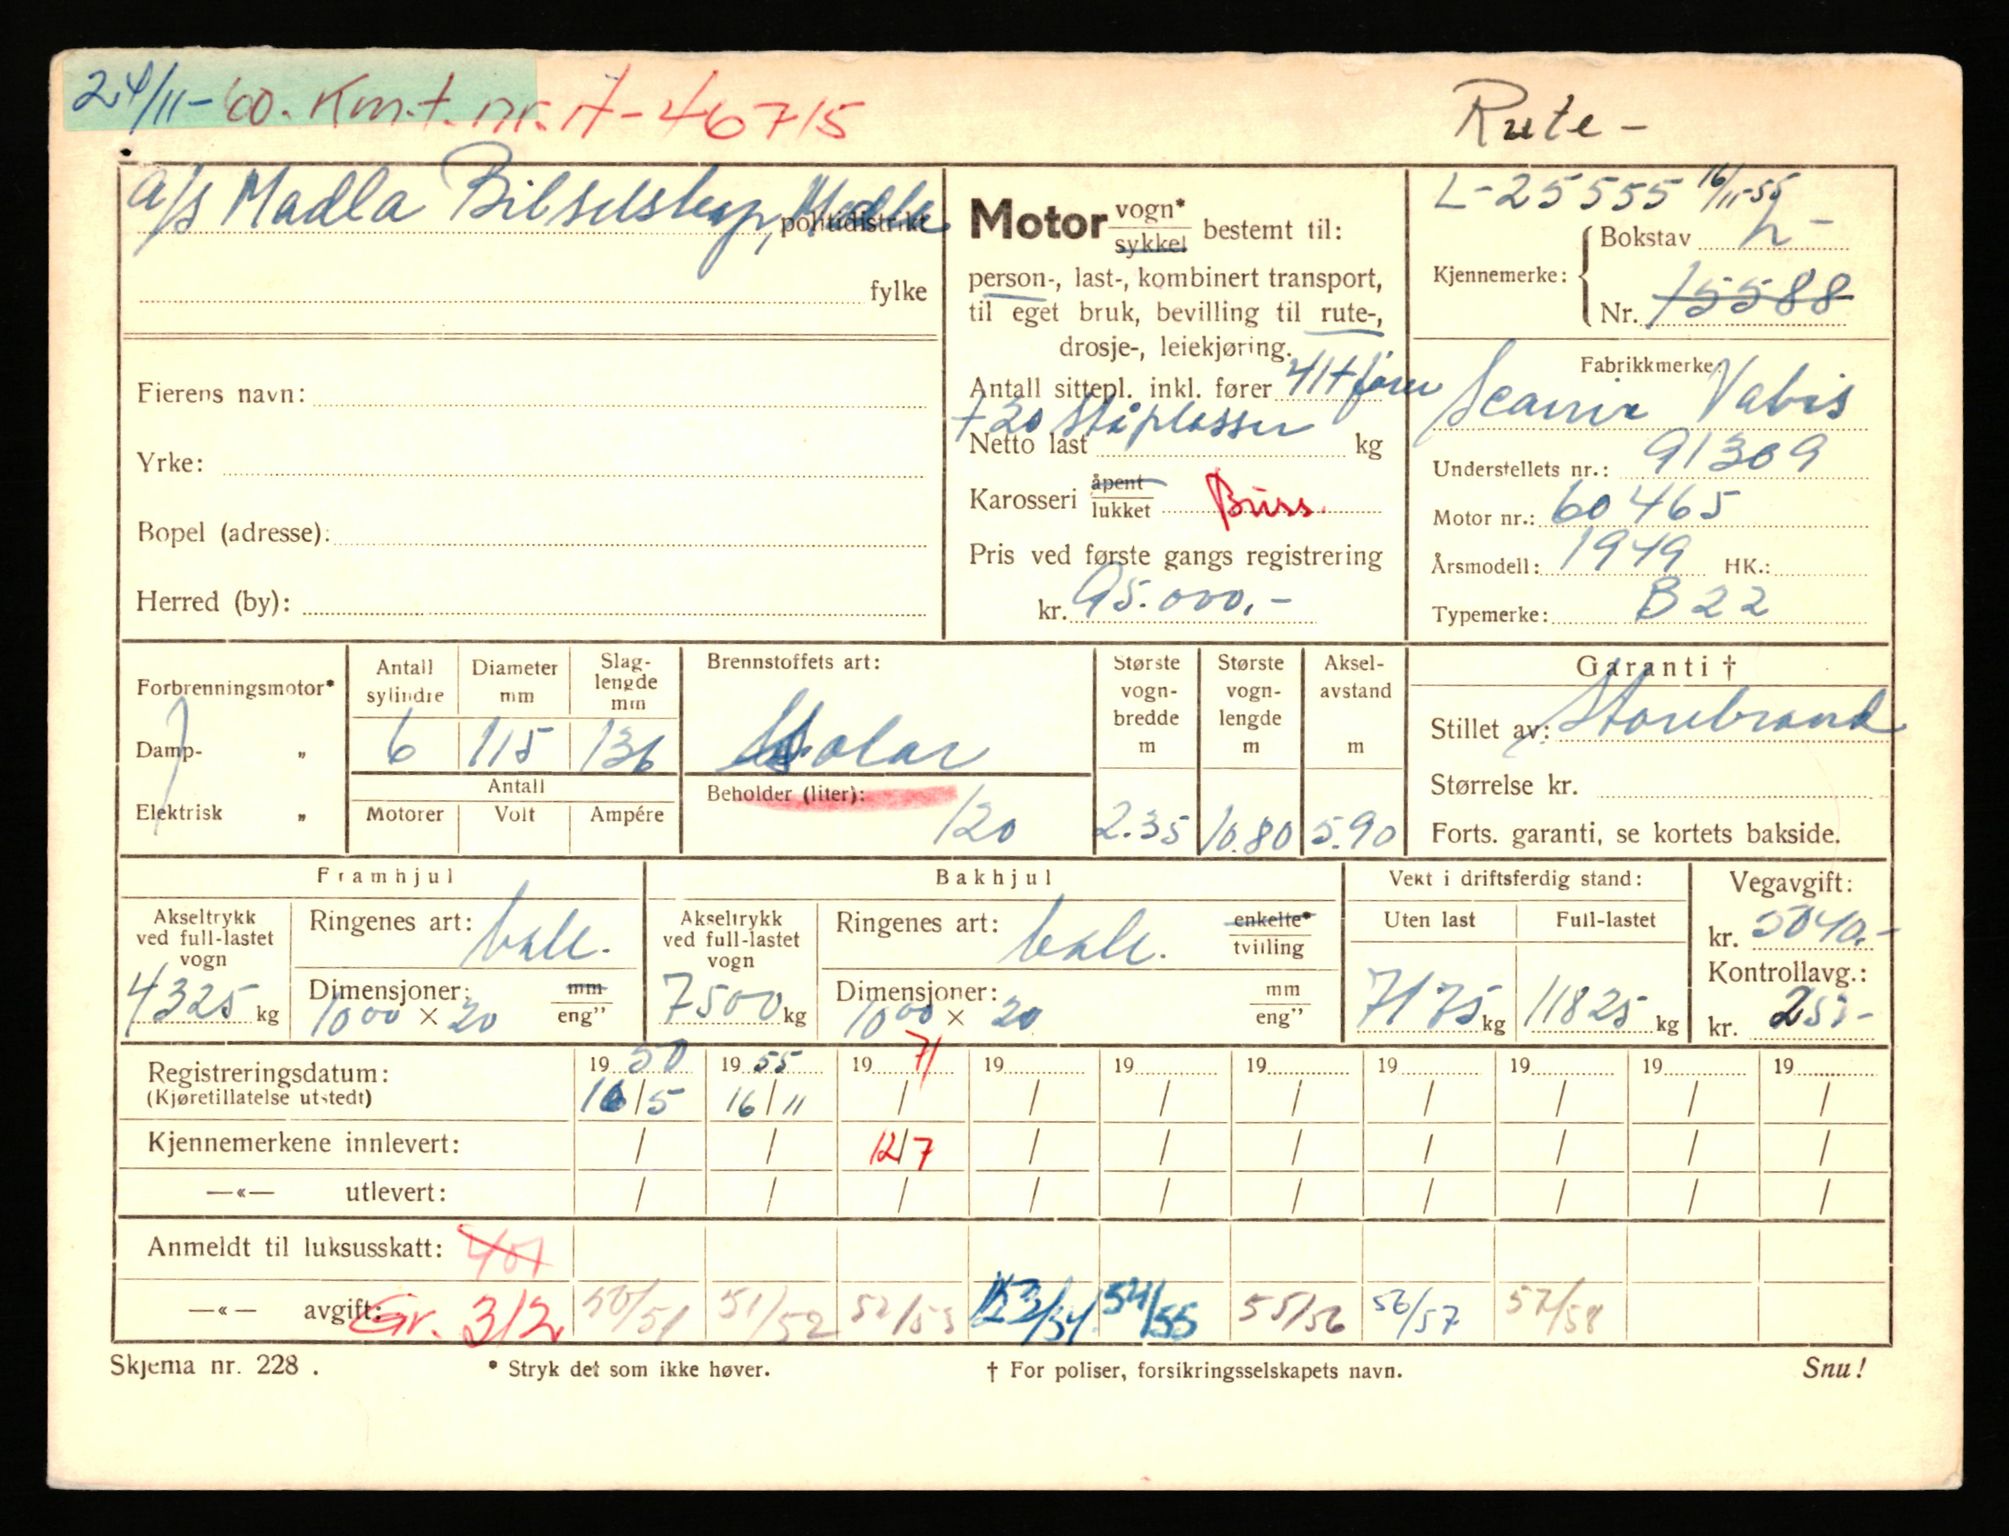 24/11-60. Km.t. nr. A-46715
Rute -
a/s Madla Bilselskap, Madla
politidistrikt
fylke
Eierens navn:
Yrke:
Bopel (adresse):
Herred (by):
Motor vogn* sykkel bestemt til:
person-, last-, kombinert transport,
til eget bruk, bevilling til rute-,
drosje-, leiekjøring.
Antall sittepl. inkl. fører 41+fører
+30 ståplasser
Netto last kg
Karosseri åpent lukket Buss.
Pris ved første gangs registrering
kr. 95.000,-
L-25555 16/11-55
Kjennemerke: Bokstav L-
Nr. 15588
Fabrikkmerke:
Scania Vabis
Understellets nr.: 91309
Motor nr.: 60465
Årsmodell: 1949 HK.:
Typemerke: B22
Forbrenningsmotor*
Damp- „
Elektrisk „
Antall sylindre
Diameter mm
Slaglengde mm
6 115 136
Antall
Motorer Volt Ampére
Brennstoffets art:
Solar
Beholder (liter):
120
Største vognbredde m
2.35
Største vognlengde m
10.80
Akselavstand m
5.90
Garanti †
Stillet av: Storebrand
Størrelse kr.
Forts. garanti, se kortets bakside.
Framhjul
Akseltrykk ved full-lastet vogn
4325 kg
Ringenes art:
Dimensjoner: mm eng”
1000 × 20
Bakhjul
Akseltrykk ved full-lastet vogn
7500 kg
Ringenes art: enkelte* tvilling
Dimensjoner: mm eng”
1000 × 20
Vekt i driftsferdig stand:
Uten last Full-lastet
7175 kg 11825 kg
Vegavgift:
kr. 5040.-
Kontrollavg.:
kr.
Registreringsdatum: 1950 1955 1971 19 19 19 19 19 19 19
(Kjøretillatelse utstedt) 16/5 16/11 / / / / / / / /
Kjennemerkene innlevert: / / 12/7 / / / / / / /
—«— utlevert: / / / / / / / / / /
Anmeldt til luksusskatt: 401
—«— avgift: Gr. 312 50/51 51/52 52/53 53/54 54/55 55/56 56/57 57/58
Skjema nr. 228 .
* Stryk det som ikke høver.
† For poliser, forsikringsselskapets navn.
Snu!